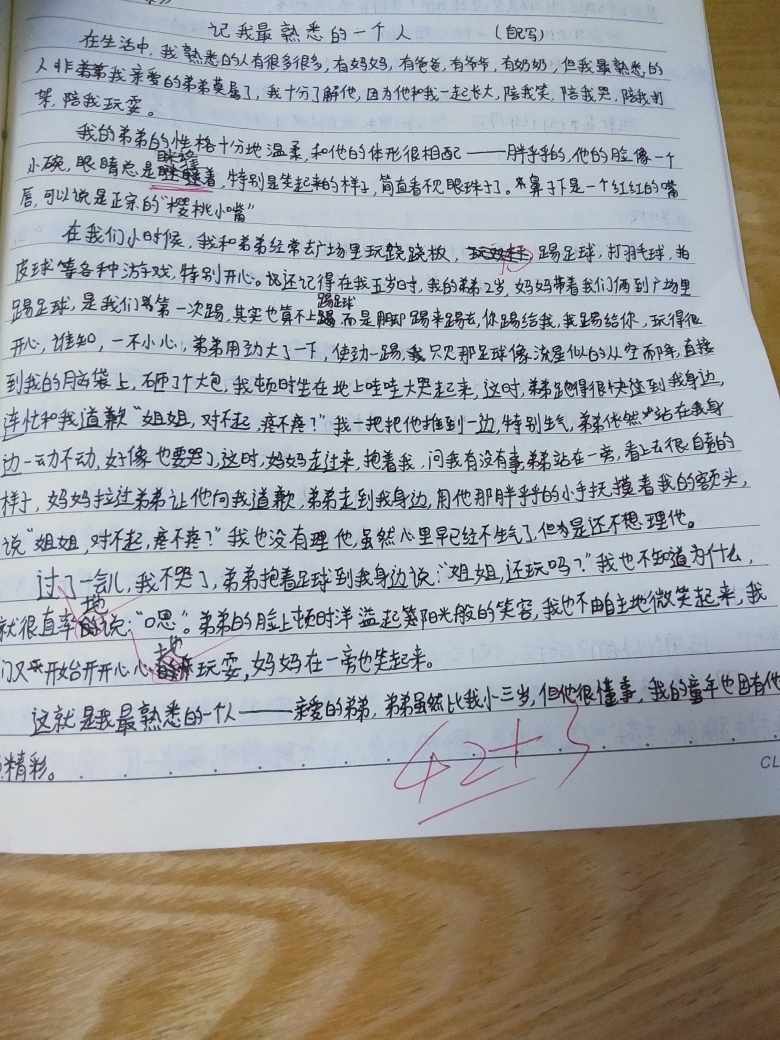 记我最熟悉的一个人 (自写)
在生活中,我熟悉的人有很多很多,有妈妈,有爸爸,有爷爷,有奶奶,但我最熟悉的
人非弟弟我亲爱的弟弟莫属了,我十分了解他,因为他和我一起长大,陪我笑,陪我哭,陪我打
架,陪我玩耍。
我的弟弟的性格十分地温柔,和他的体形很相配——胖乎乎的,他的脸像一个
小碗,眼睛总是着,特别是笑起来的样子,简直看不见眼珠子了。鼻子下是一个红红的嘴
唇,可以说是正宗的“樱桃小嘴”
在我们小时候,我和弟弟经常去广场里玩跷跷板,踢足球,打羽毛球,拍
皮球等各种游戏,特别开心。还记得在我五岁时,我的弟弟2岁,妈妈带着我们俩到广场里
踢足球,是我们第一次踢,其实也算不上踢足球而是用脚踢来踢去,你踢给我,我踢给你,玩得很
开心,谁知,一不小心,弟弟用劲大了一下,使劲一踢,我只见那足球像流星似的从空而降,直接
到我的脑袋上,砸了个大包,我顿时坐在地上哇哇大哭起来,这时,弟弟跑得很快连到我身边,
连忙和我道歉“姐姐,对不起,疼不疼?”我一把把他推到一边,特别生气,弟弟依然站在我身
边一动不动,好像也要哭了,这时,妈妈走过来,抱着我,问我有没有事弟弟站在一旁,看上去很自责的
样子,妈妈拉过弟弟让他向我道歉,弟弟走到我身边,用他那胖乎乎的小手抚摸着我的额头,
说“姐姐,对不起,疼不疼?”我也没有理他,虽然心里早已经不生气了,但是还不想理他。
过了一会儿,我不哭了,弟弟抱着足球到我身边说:“姐姐,还玩吗?”我也不知道为什么,
就很直率地说:“嗯”。弟弟的脸上顿时洋溢起笑阳光般的笑容,我也不由自主地微笑起来,我
们又开始开开心心地玩耍,妈妈在一旁也笑起来。
这就是我最熟悉的一个人——亲爱的弟弟,弟弟虽然比我小三岁,但他很懂事,我的童年也因有他
精彩。
42+3
CL